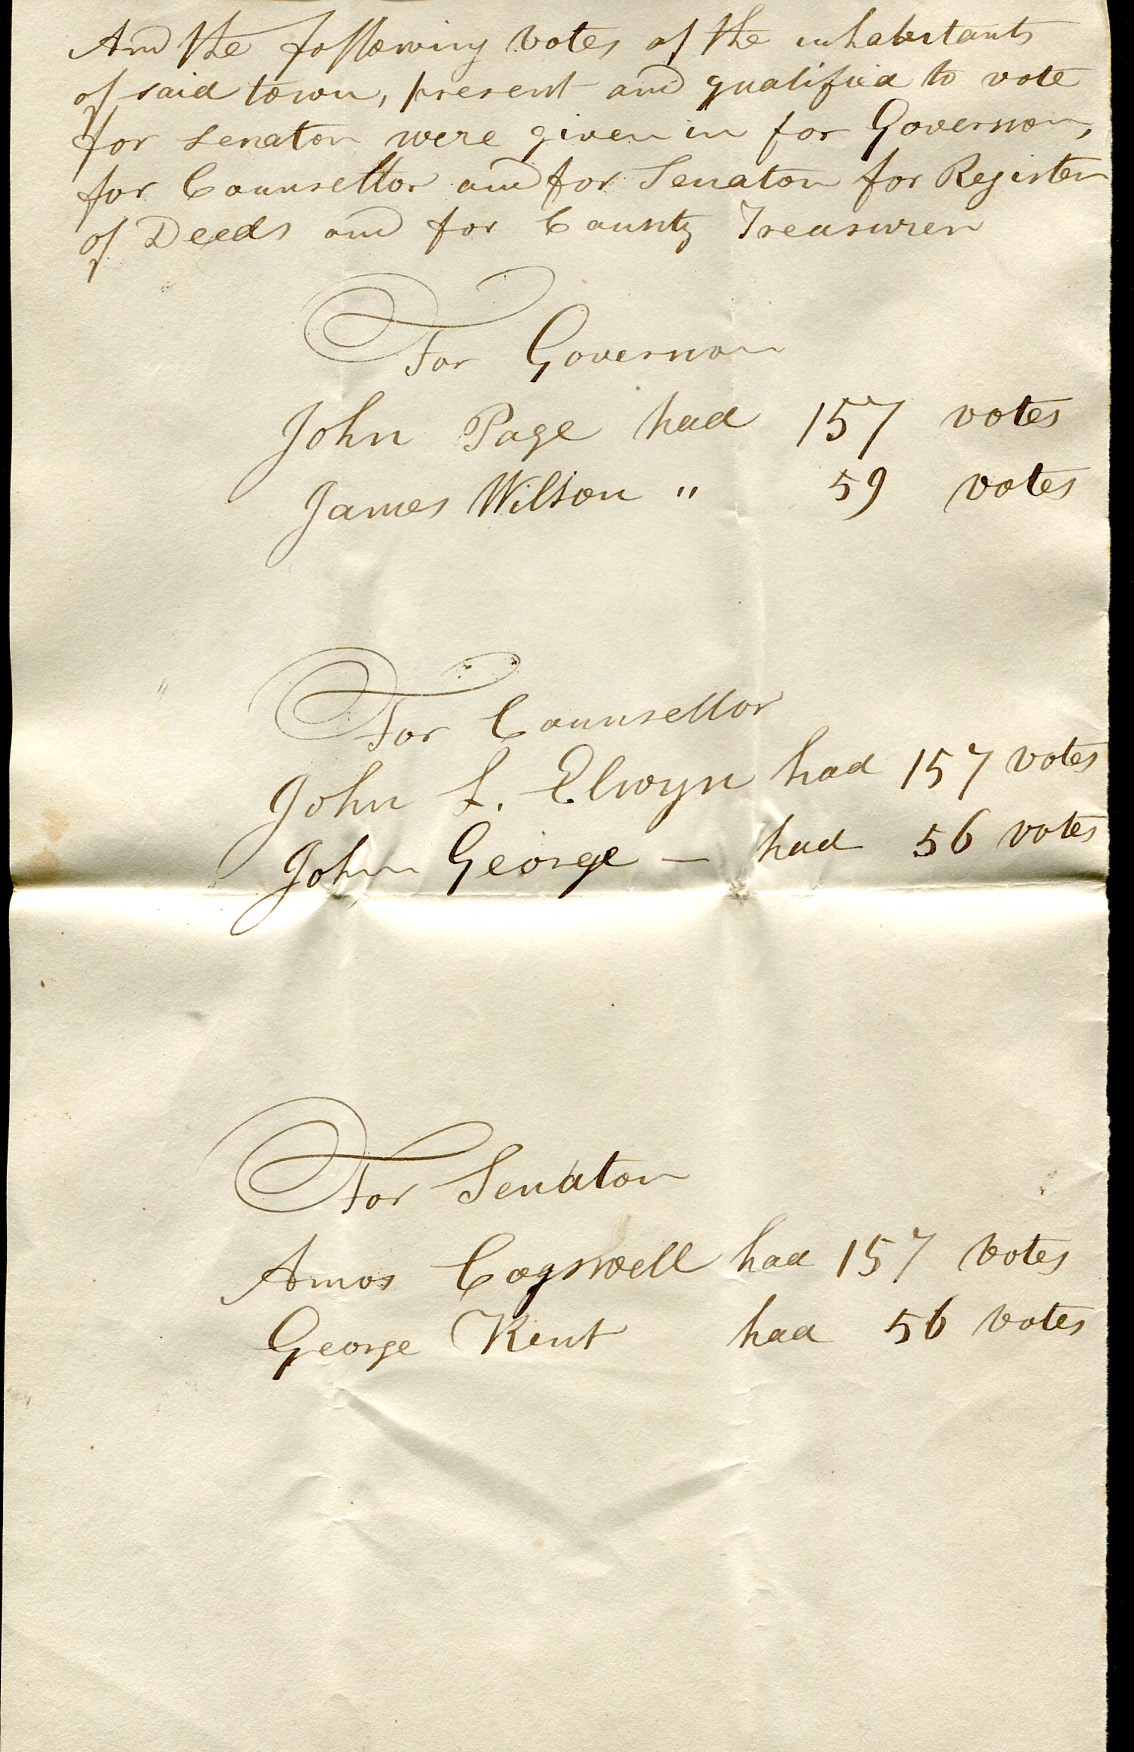 And the following votes of the inhabitants
of said town, present and qualified to vote
for senator were given in for Governor,
for Counsellor and for Senator for Register
of Deeds and for County Treasurer
For Governor
John Page had 157 votes
James Wilson " 59 votes
For Counsellor
John L. Elwyn had 157 votes
John George — had 56 votes
For Senator
Amos Cogswell had 157 votes
George Kent had 56 votes